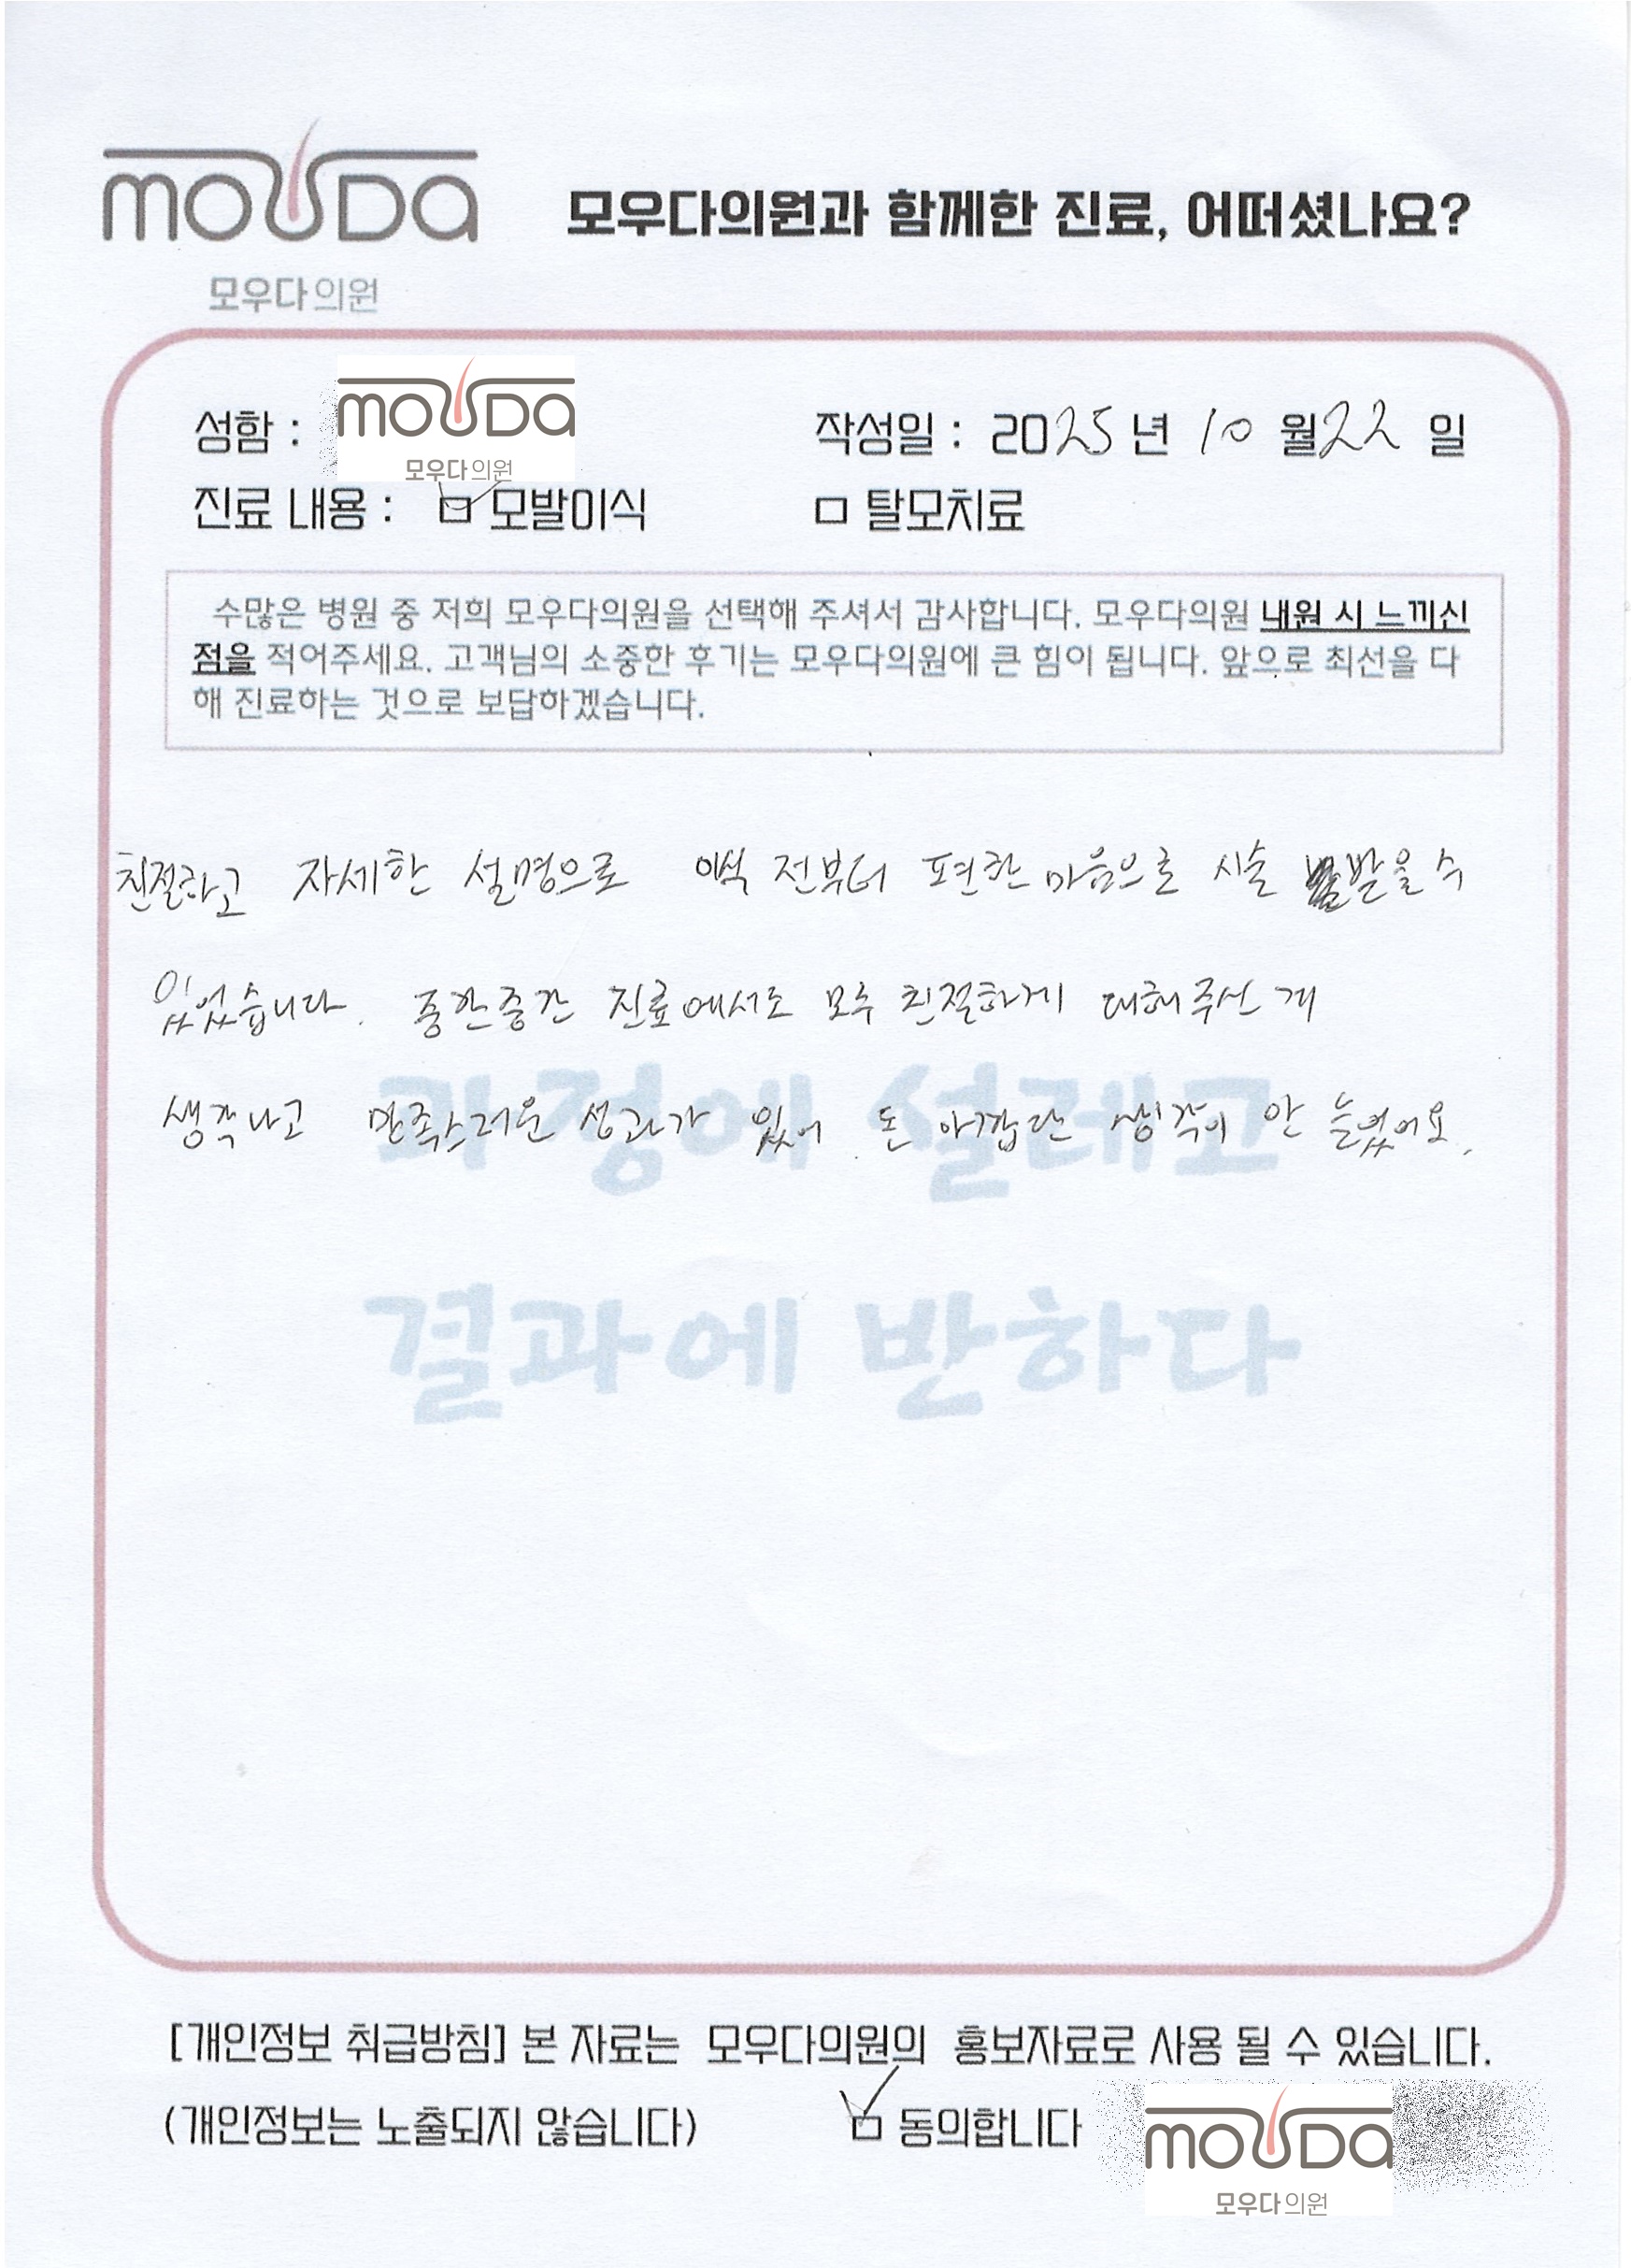 mouda
모우다의원
모우다의원과 함께한 진료, 어떠셨나요?
성함 : mouda
모우다의원
작성일 : 2025년 10월 22일
진료 내용 : ☑ 모발이식 □ 탈모치료
수많은 병원 중 저희 모우다의원을 선택해 주셔서 감사합니다. 모우다의원 내원 시 느끼신
점을 적어주세요. 고객님의 소중한 후기는 모우다의원에 큰 힘이 됩니다. 앞으로 최선을 다
해 진료하는 것으로 보답하겠습니다.
친절하고 자세한 설명으로 이식 전부터 편한 마음으로 시술 받을 수
있었습니다. 중간중간 진료에서도 모두 친절하게 대해주신 게
생각나고 만족스러운 성과가 있어 돈 아깝단 생각이 안 들었어요.
과정에 설레고
결과에 반하다
[개인정보 취급방침] 본 자료는 모우다의원의 홍보자료로 사용 될 수 있습니다.
(개인정보는 노출되지 않습니다) ☑ 동의합니다
mouda
모우다의원